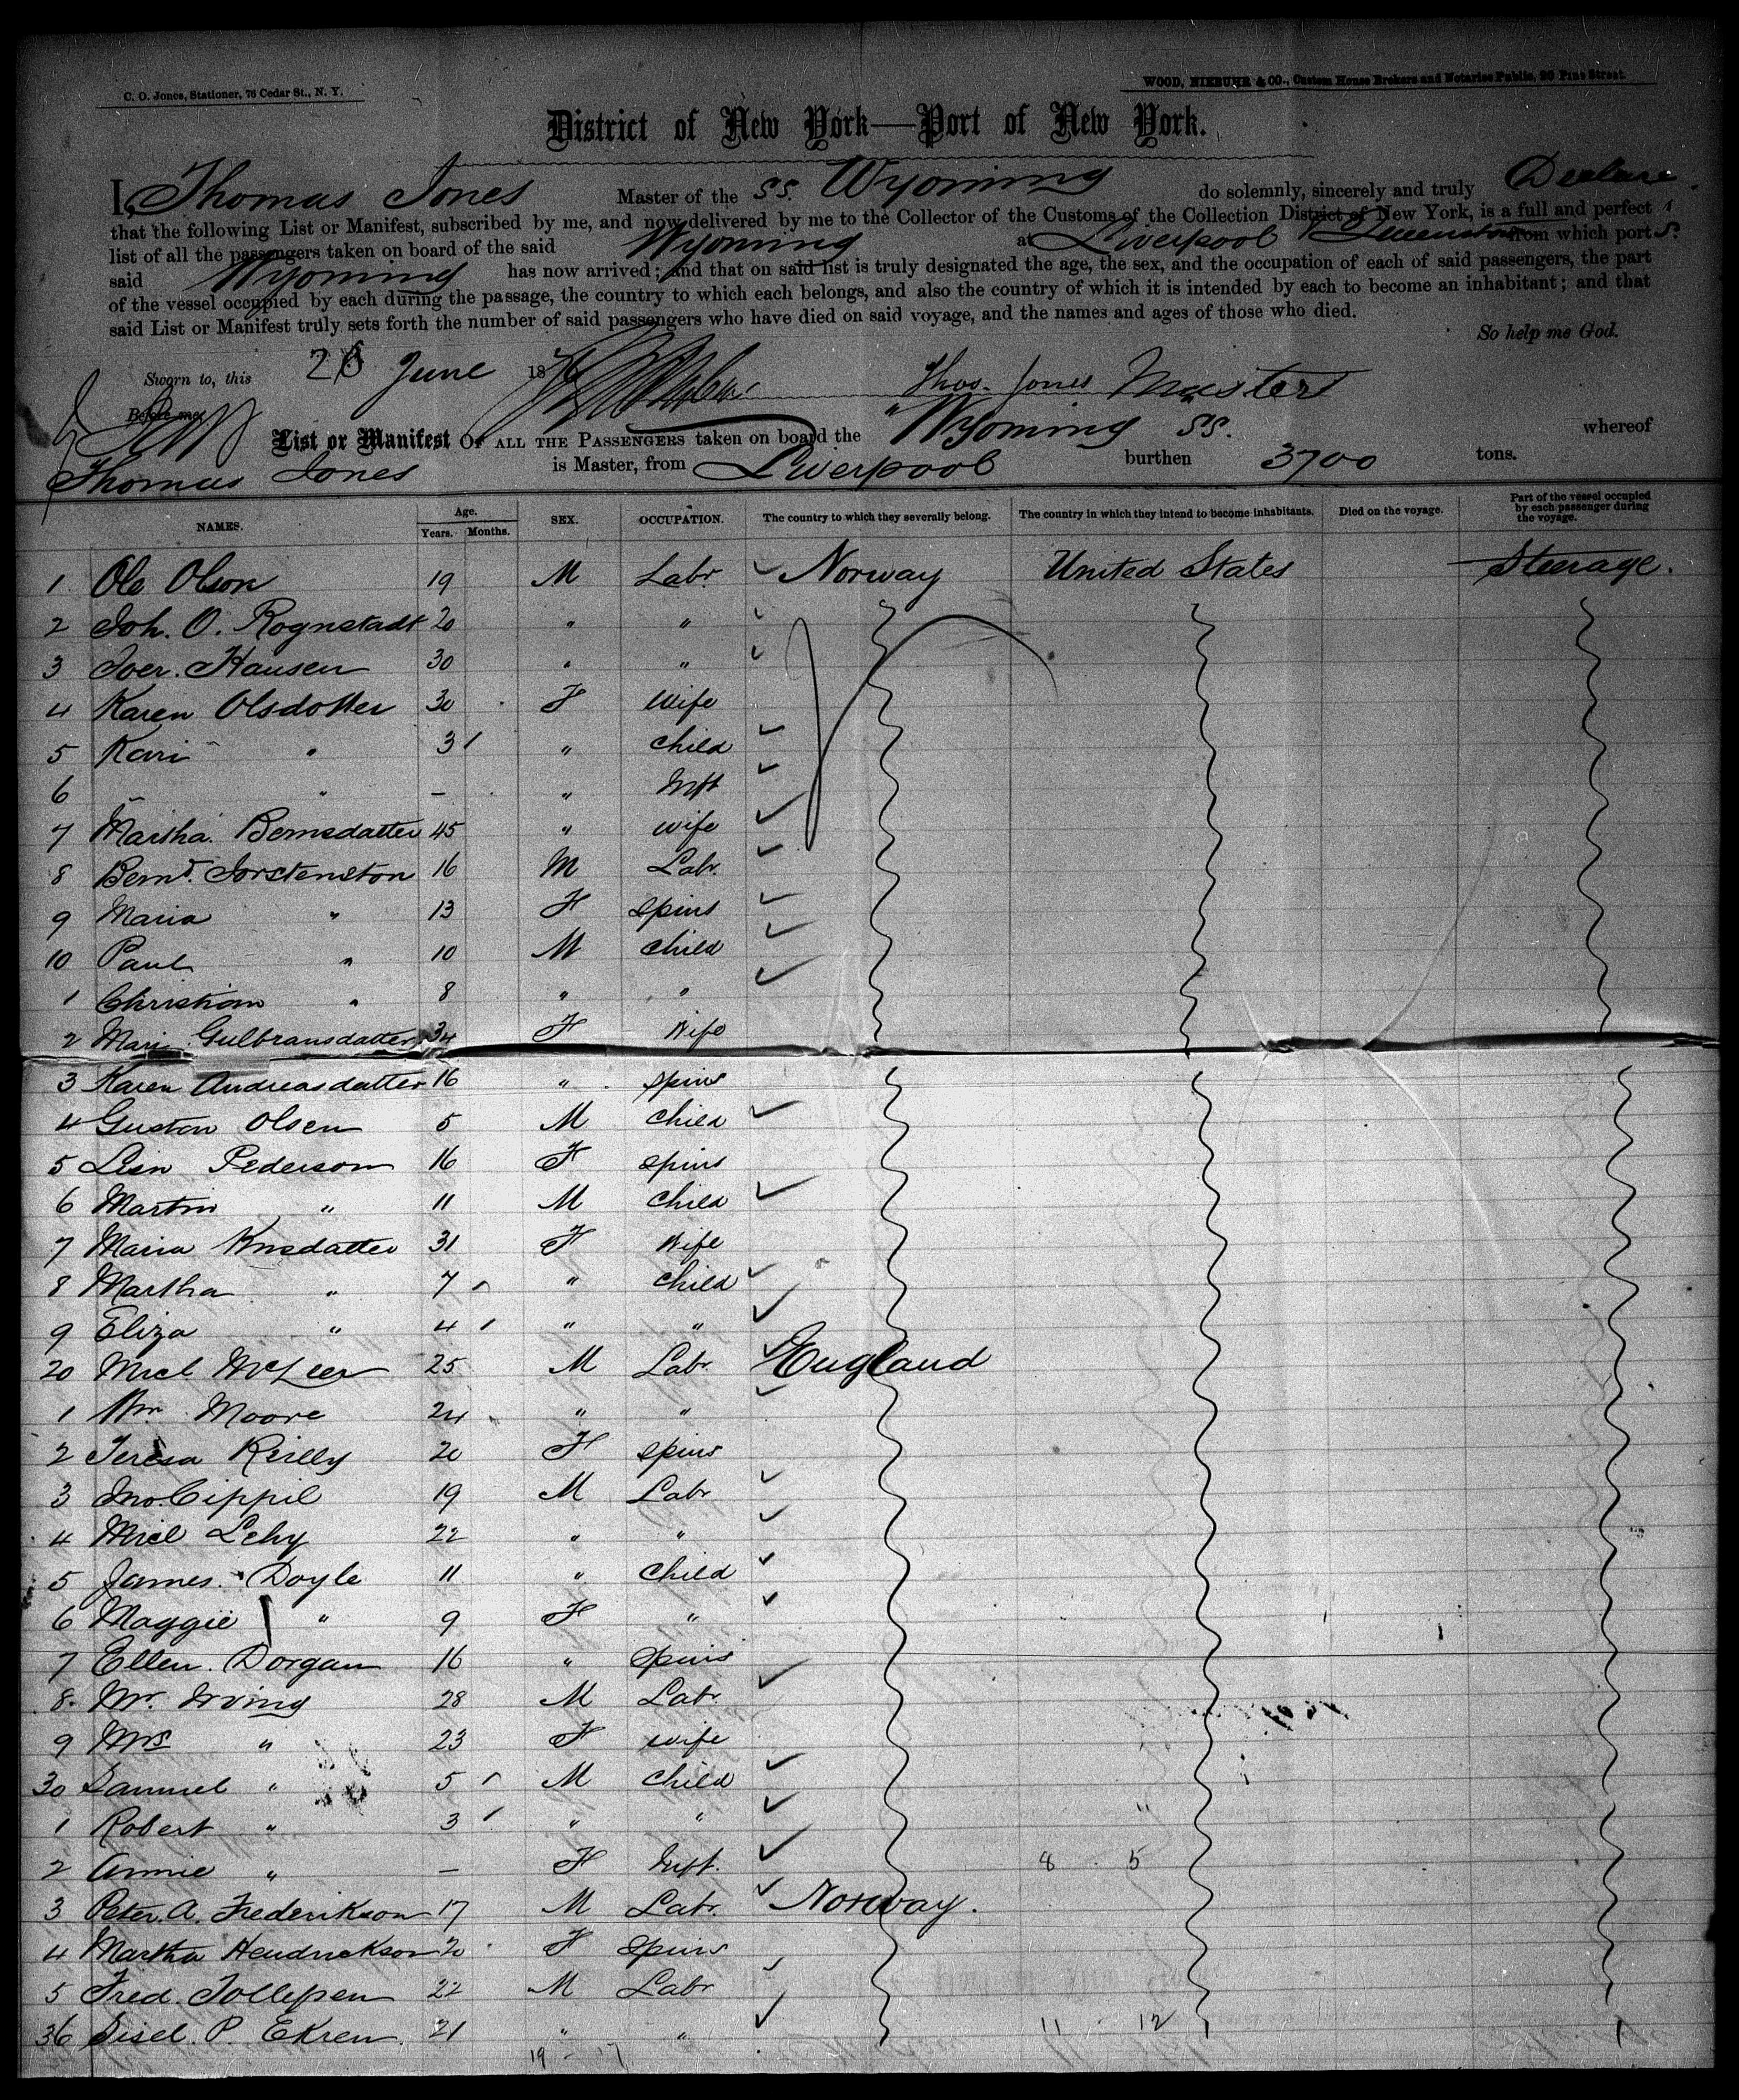 C. O. Jones, Stationer, 76 Cedar St., N. Y.
WOOD, NIEBUHR & CO., Custom House Brokers and Notaries Public, 26 Pine Street.
District of New York—Port of New York.
I, Thomas Jones Master of the SS. Wyoming do solemnly, sincerely and truly Declare
that the following List or Manifest, subscribed by me, and now delivered by me to the Collector of the Customs of the Collection District of New York, is a full and perfect
list of all the passengers taken on board of the said Wyoming at Liverpool from which port
said Wyoming has now arrived; and that on said list is truly designated the age, the sex, and the occupation of each of said passengers, the part
of the vessel occupied by each during the passage, the country to which each belongs, and also the country of which it is intended by each to become an inhabitant; and that
said List or Manifest truly sets forth the number of said passengers who have died on said voyage, and the names and ages of those who died.
So help me God.
Sworn to, this 26 June 18 Thos. Jones Master
Before me,
List or Manifest OF ALL THE PASSENGERS taken on board the "Wyoming" SS. whereof
Thomas Jones is Master, from Liverpool burthen 3700 tons.
NAMES. Age. Years. Months. SEX. OCCUPATION. The country to which they severally belong. The country in which they intend to become inhabitants. Died on the voyage. Part of the vessel occupied by each passenger during the voyage.
1 Ole Olson 19 M Labr. Norway United States Steerage.
2 Joh. O. Rognstadt 20 " "
3 Iver. Hansen 30 " "
4 Karen Olsdotter 30 F Wife
5 Kari " 3 " Child
6 " — " Inft
7 Martha Bernsdatter 45 " wife
8 Bernt. Torstenston 16 M Labr.
9 Maria " 13 F spins
10 Paul " 10 M Child
1 Christian " 8 " "
2 Mari Gulbransdatter 34 F Wife
3 Karen Andreasdatter 16 " spins
4 Guston Olsen 5 M Child
5 Lisn Pederson 16 F spins
6 Martin " 11 M Child
7 Maria Knsdatter 31 F Wife
8 Martha " 7 " Child
9 Eliza " 4 " "
20 Micl McLeer 25 M Labr. England
1 Wm Moore 24 " "
2 Teresa Reilly 20 F spins
3 Jno. Cippil 19 M Labr
4 Micl Lehy 22 " "
5 James Doyle 11 " Child
6 Maggie " 9 F "
7 Ellen Dorgan 16 " Spins
8 Mr. Irving 28 M Labr.
9 Mrs " 23 F wife
30 Samuel " 5 M Child
1 Robert " 3 " "
2 Annie " — F Inft. 8 5
3 Peter. A. Frederikson 17 M Labr. Norway.
4 Martha Hendrickson 20 F Spins
5 Fred. Tollefsen 22 M Labr
36 Sisel. P. Ekren. 21 " " 11 12
19 - 17